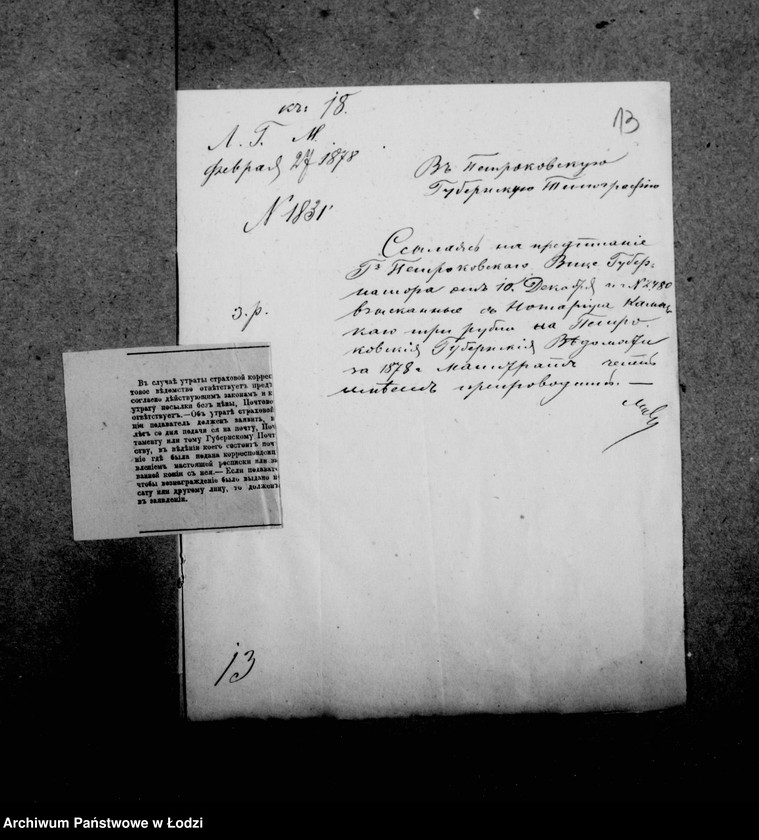 къ: 18.
13
Л. Г. М.
Февраля 27 1878
Въ Петроковскую
Губернскую Типографію
№ 1831
Ссылаясь на предписаніе
Гн Петроковскаго Вице Губер-
натора отъ 10. Декабря № 2480
взысканные съ Нотаріуса
три рубли на Петро-
ковскія Губернскія Вѣдомости
за 1878 г Магистратъ честь
имѣетъ препроводить. —
3. р.
Въ случаѣ утраты страховой коррес
товое вѣдомство отвѣтствуетъ предъ
согласно дѣйствующимъ законамъ и к
утрату посылки безъ цѣны, Почтово
отвѣтствуетъ.—Объ утратѣ страховой
ніи подаватель долженъ заявить, в
лѣтъ со дня подачи ея на почту, Поч
таменту или тому Губернскому Почт
ству, въ вѣдѣніи коего состоитъ поч
ніе гдѣ была подана корреспонденц
вленіемъ настоящей росписки или за
ванной копіи съ нея.— Если подават
чтобы вознагражденіе было выдано н
сату или другому лицу, то долженъ
въ заявленіи.
13
Archiwum Państwowe w Łodzi